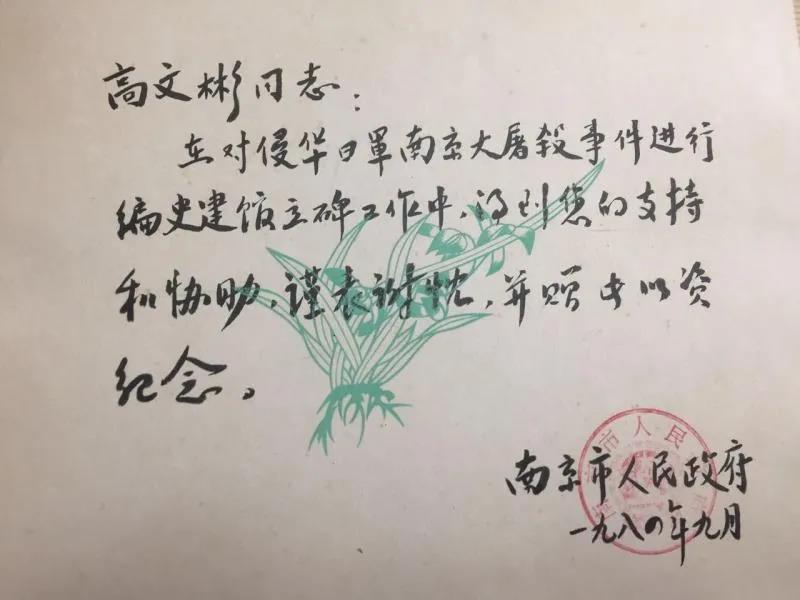 高文彬同志：
在对侵华日军南京大屠殺事件进行
编史建馆立碑工作中，得到您的支持
和协助，谨表谢忱，并赠此以资
纪念。
南京市人民政府
一九八四年九月
市人民